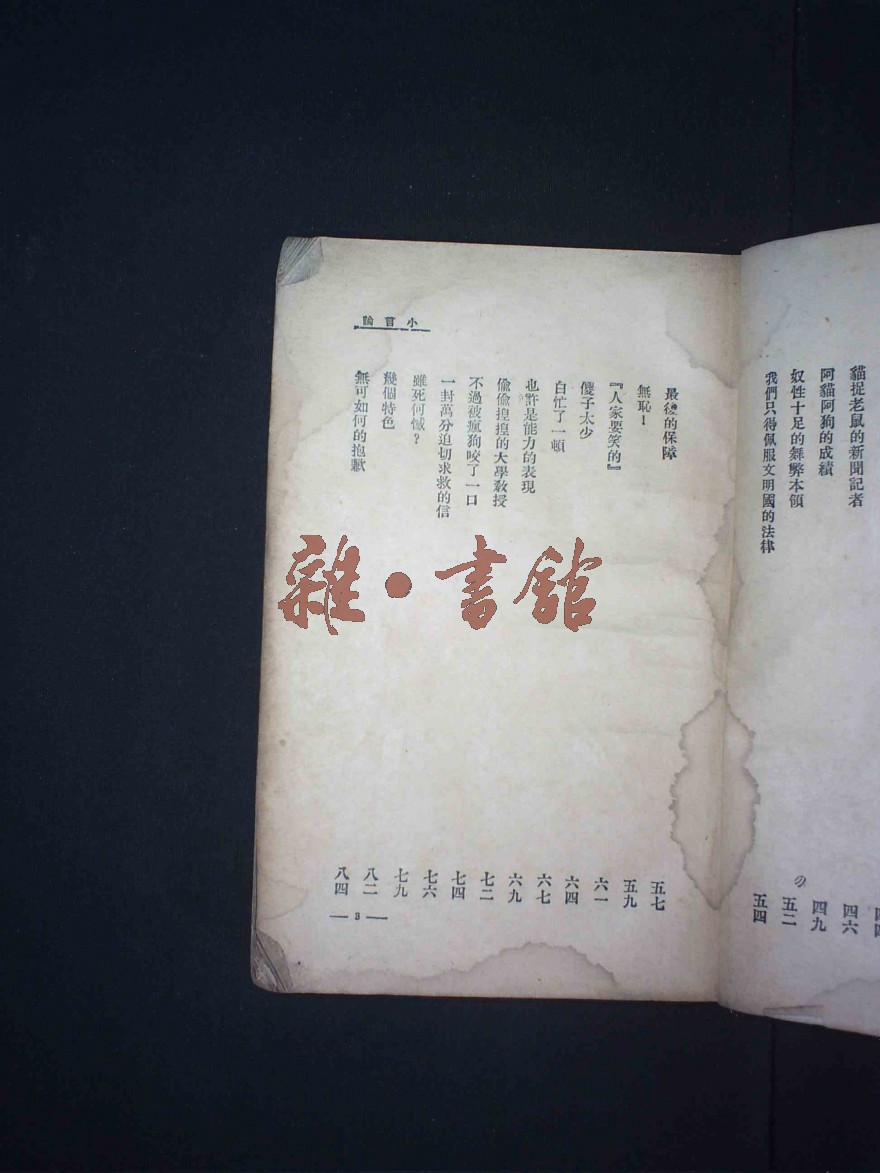 貓捉老鼠的新聞記者 四六
阿貓阿狗的成績 四九
奴性十足的舞弊本領 五二
我們只得佩服文明國的法律 五四
小言論
最後的保障 五七
無恥！ 五九
『人家要笑的』 六一
傻子太少 六四
白忙了一頓 六七
也許是能力的表現 六九
偷偷的大學教授 七二
不過被瘋狗咬了一口 七四
一封萬分迫切求救的信 七六
雖死何憾？ 七九
幾個特色 八二
無可如何的抱歉 八四
— 3 —
雜·書館